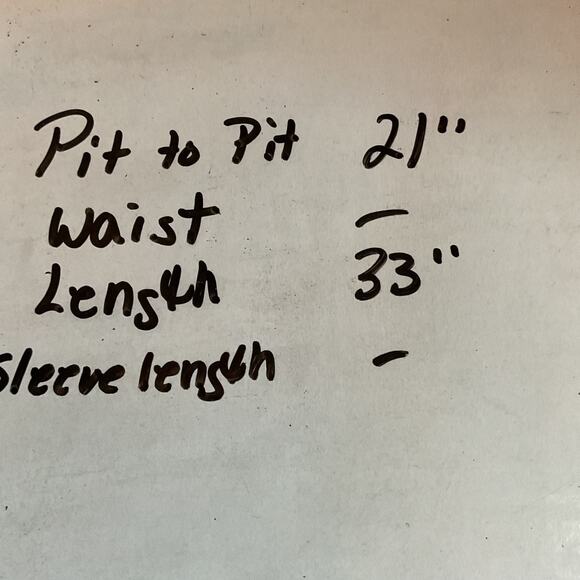 Pit to Pit 21"
Waist –
Length 33"
Sleeve length –